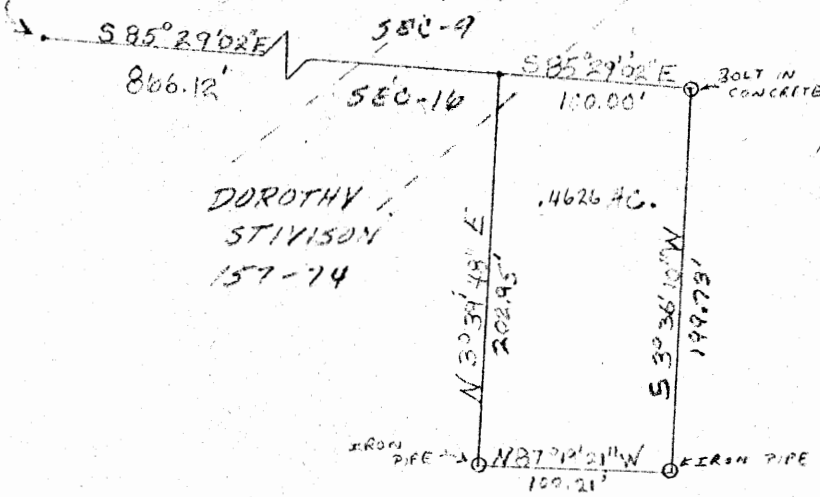 S 85°29'02"E
866.12'
SEC-9
SEC-16
S 85°29'02"E
100.00'
BOLT IN
CONCRETE
DOROTHY
STIVISON
157-74
.4626 AC.
N 3°39'48" E
202.95'
S 3°36'10" W
199.73'
IRON
PIPE
N87°19'21"W
100.21'
IRON PIPE